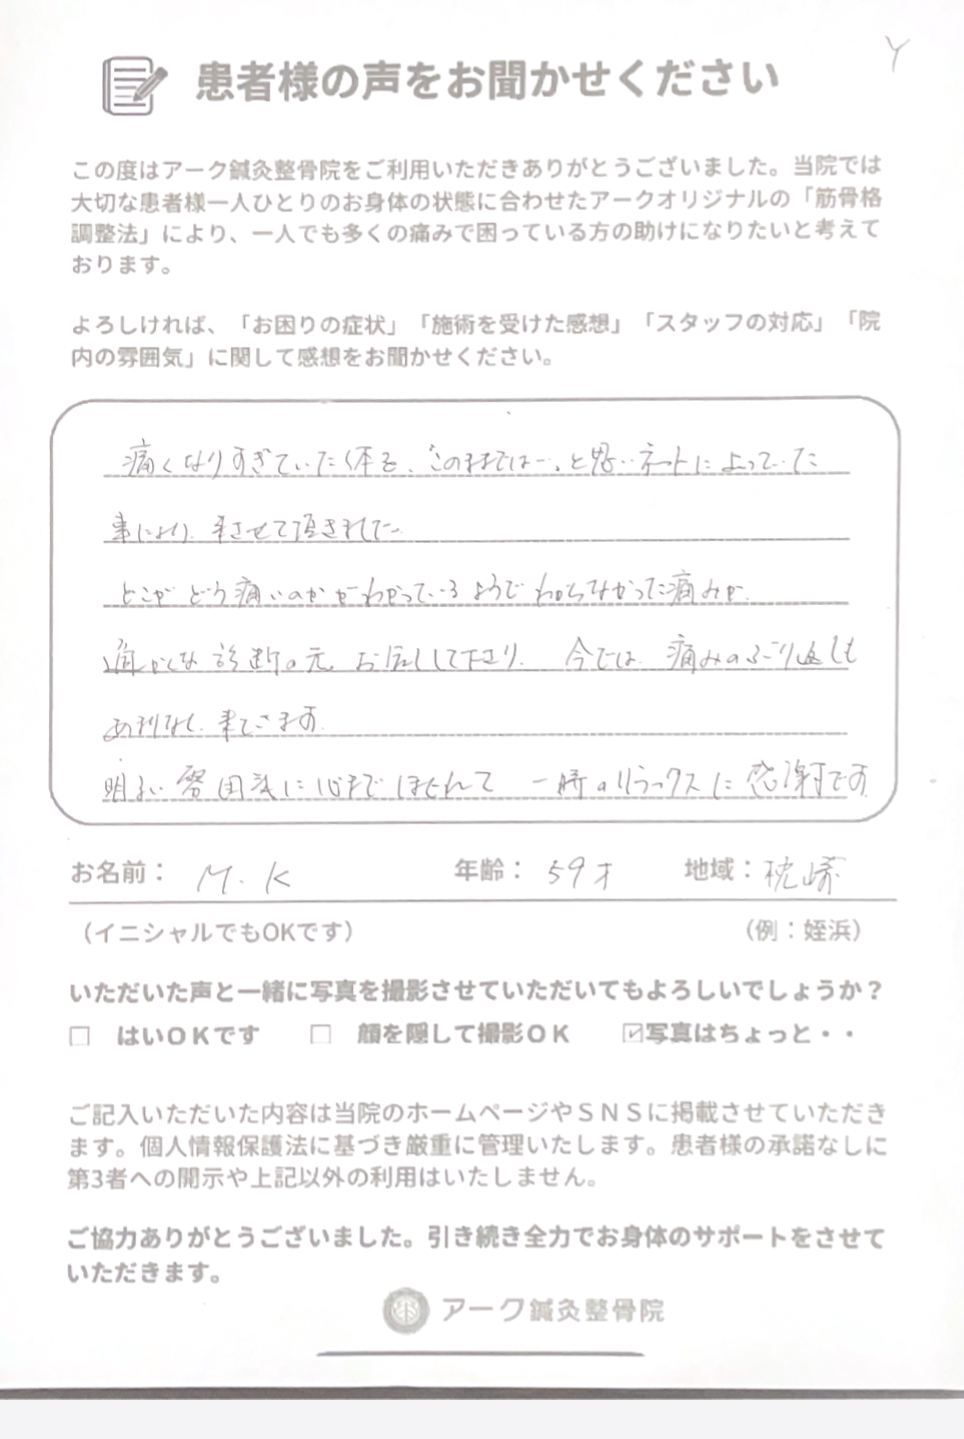 Y
患者様の声をお聞かせください
この度はアーク鍼灸整骨院をご利用いただきありがとうございました。当院では
大切な患者様一人ひとりのお身体の状態に合わせたアークオリジナルの「筋骨格
調整法」により、一人でも多くの痛みで困っている方の助けになりたいと考えて
おります。
よろしければ、「お困りの症状」「施術を受けた感想」「スタッフの対応」「院
内の雰囲気」に関して感想をお聞かせください。
痛くなりすぎていた体を、このままでは…、と思いネットによっていた
事により、来させて頂きました。
どこがどう痛いのかがわかっているようでわからなかった痛みを、
適かくな診断の元 お同しして下さり、 今では 痛みのぶり返しも
あまりなく 来てきます。
明るい雰囲気に心までほぐれて 一時のリラックスに感謝です
お名前： M. K 年齢： 59才 地域：枕崎
（イニシャルでもOKです） （例：姪浜）
いただいた声と一緒に写真を撮影させていただいてもよろしいでしょうか？
□ はいＯＫです □ 顔を隠して撮影ＯＫ ☑写真はちょっと・・
ご記入いただいた内容は当院のホームページやＳＮＳに掲載させていただき
ます。個人情報保護法に基づき厳重に管理いたします。患者様の承諾なしに
第3者への開示や上記以外の利用はいたしません。
ご協力ありがとうございました。引き続き全力でお身体のサポートをさせて
いただきます。
アーク鍼灸整骨院